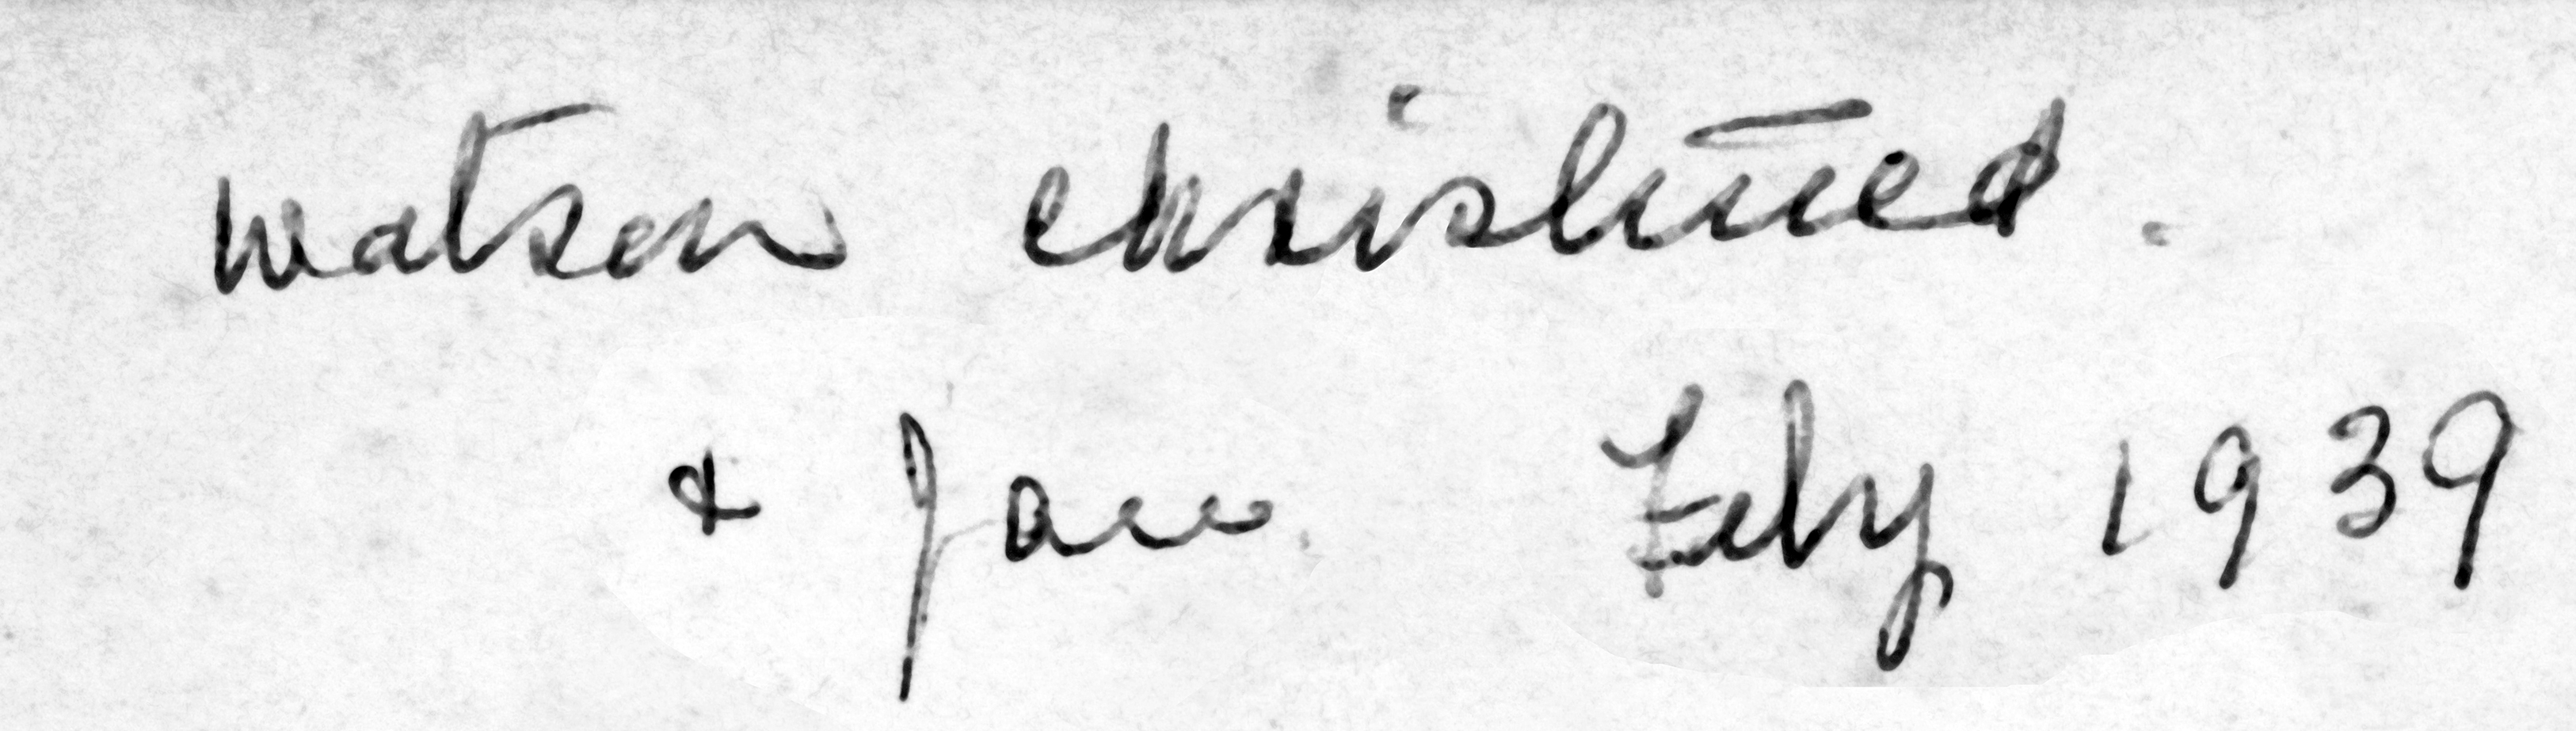 Watson christened.
& Jan. Feby 1939